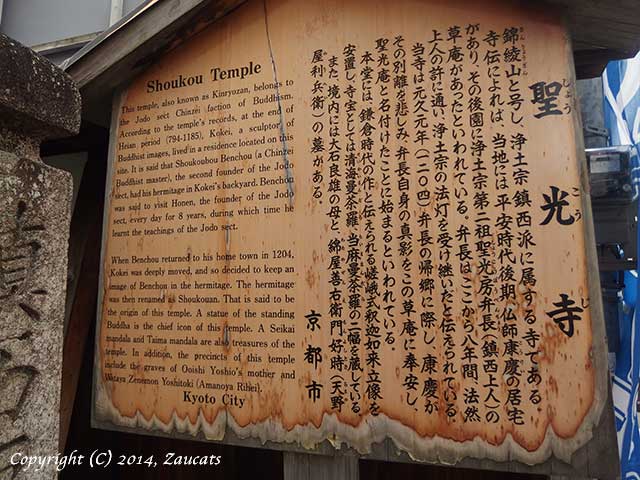 聖光寺
しょうこうじ
錦綾山と号し、浄土宗鎮西派に属する寺である。
きんりょうざん
寺伝によれば、当地には平安時代後期、仏師康慶の居宅
があり、その後園に浄土宗第二祖聖光房弁長(鎮西上人)の
草庵があったといわれている。弁長はここから八年間、法然
上人の許に通い、浄土宗の法灯を受け継いだと伝えられている。
当寺は元久元年(一二〇四)弁長の帰郷に際し、康慶が
その別離を悲しみ、弁長自身の真影をこの草庵に奉安し、
聖光庵と名付けたことに始まるといわれている。
本堂には、鎌倉時代の作と伝えられる嵯峨式釈迦如来立像を
安置し、寺宝としては清海曼荼羅、当麻曼荼羅の二幅を蔵している。
また、境内には大石良雄の母と、綿屋善右衛門好時(天野
屋利兵衛)の墓がある。
京都市
Shoukou Temple
This temple, also known as Kinryozan, belongs to
the Jodo sect Chinzei faction of Buddhism.
According to the temple's records, at the end of
Heian period (794-1185), Kokei, a sculptor of
Buddhist images, lived in a residence located on this
site. It is said that Shoukoubou Benchou (a Chinzei
Buddhist master), the second founder of the Jodo
sect, had his hermitage in Kokei's backyard. Benchou
was said to visit Honen, the founder of the Jodo
sect, every day for 8 years, during which time he
learnt the teachings of the Jodo sect.
When Benchou returned to his home town in 1204,
Kokei was deeply moved, and so decided to keep an
image of Benchou in the hermitage. The hermitage
was then renamed as Shoukouan. That is said to be
the origin of this temple. A statue of the standing
Buddha is the chief icon of this temple. A Seikai
mandala and Taima mandala are also treasures of the
temple. In addition, the precincts of this temple
include the graves of Ooishi Yoshio's mother and
Wataya Zenemon Yoshitoki (Amanoya Rihei).
Kyoto City
Copyright (C) 2014, Zaucats